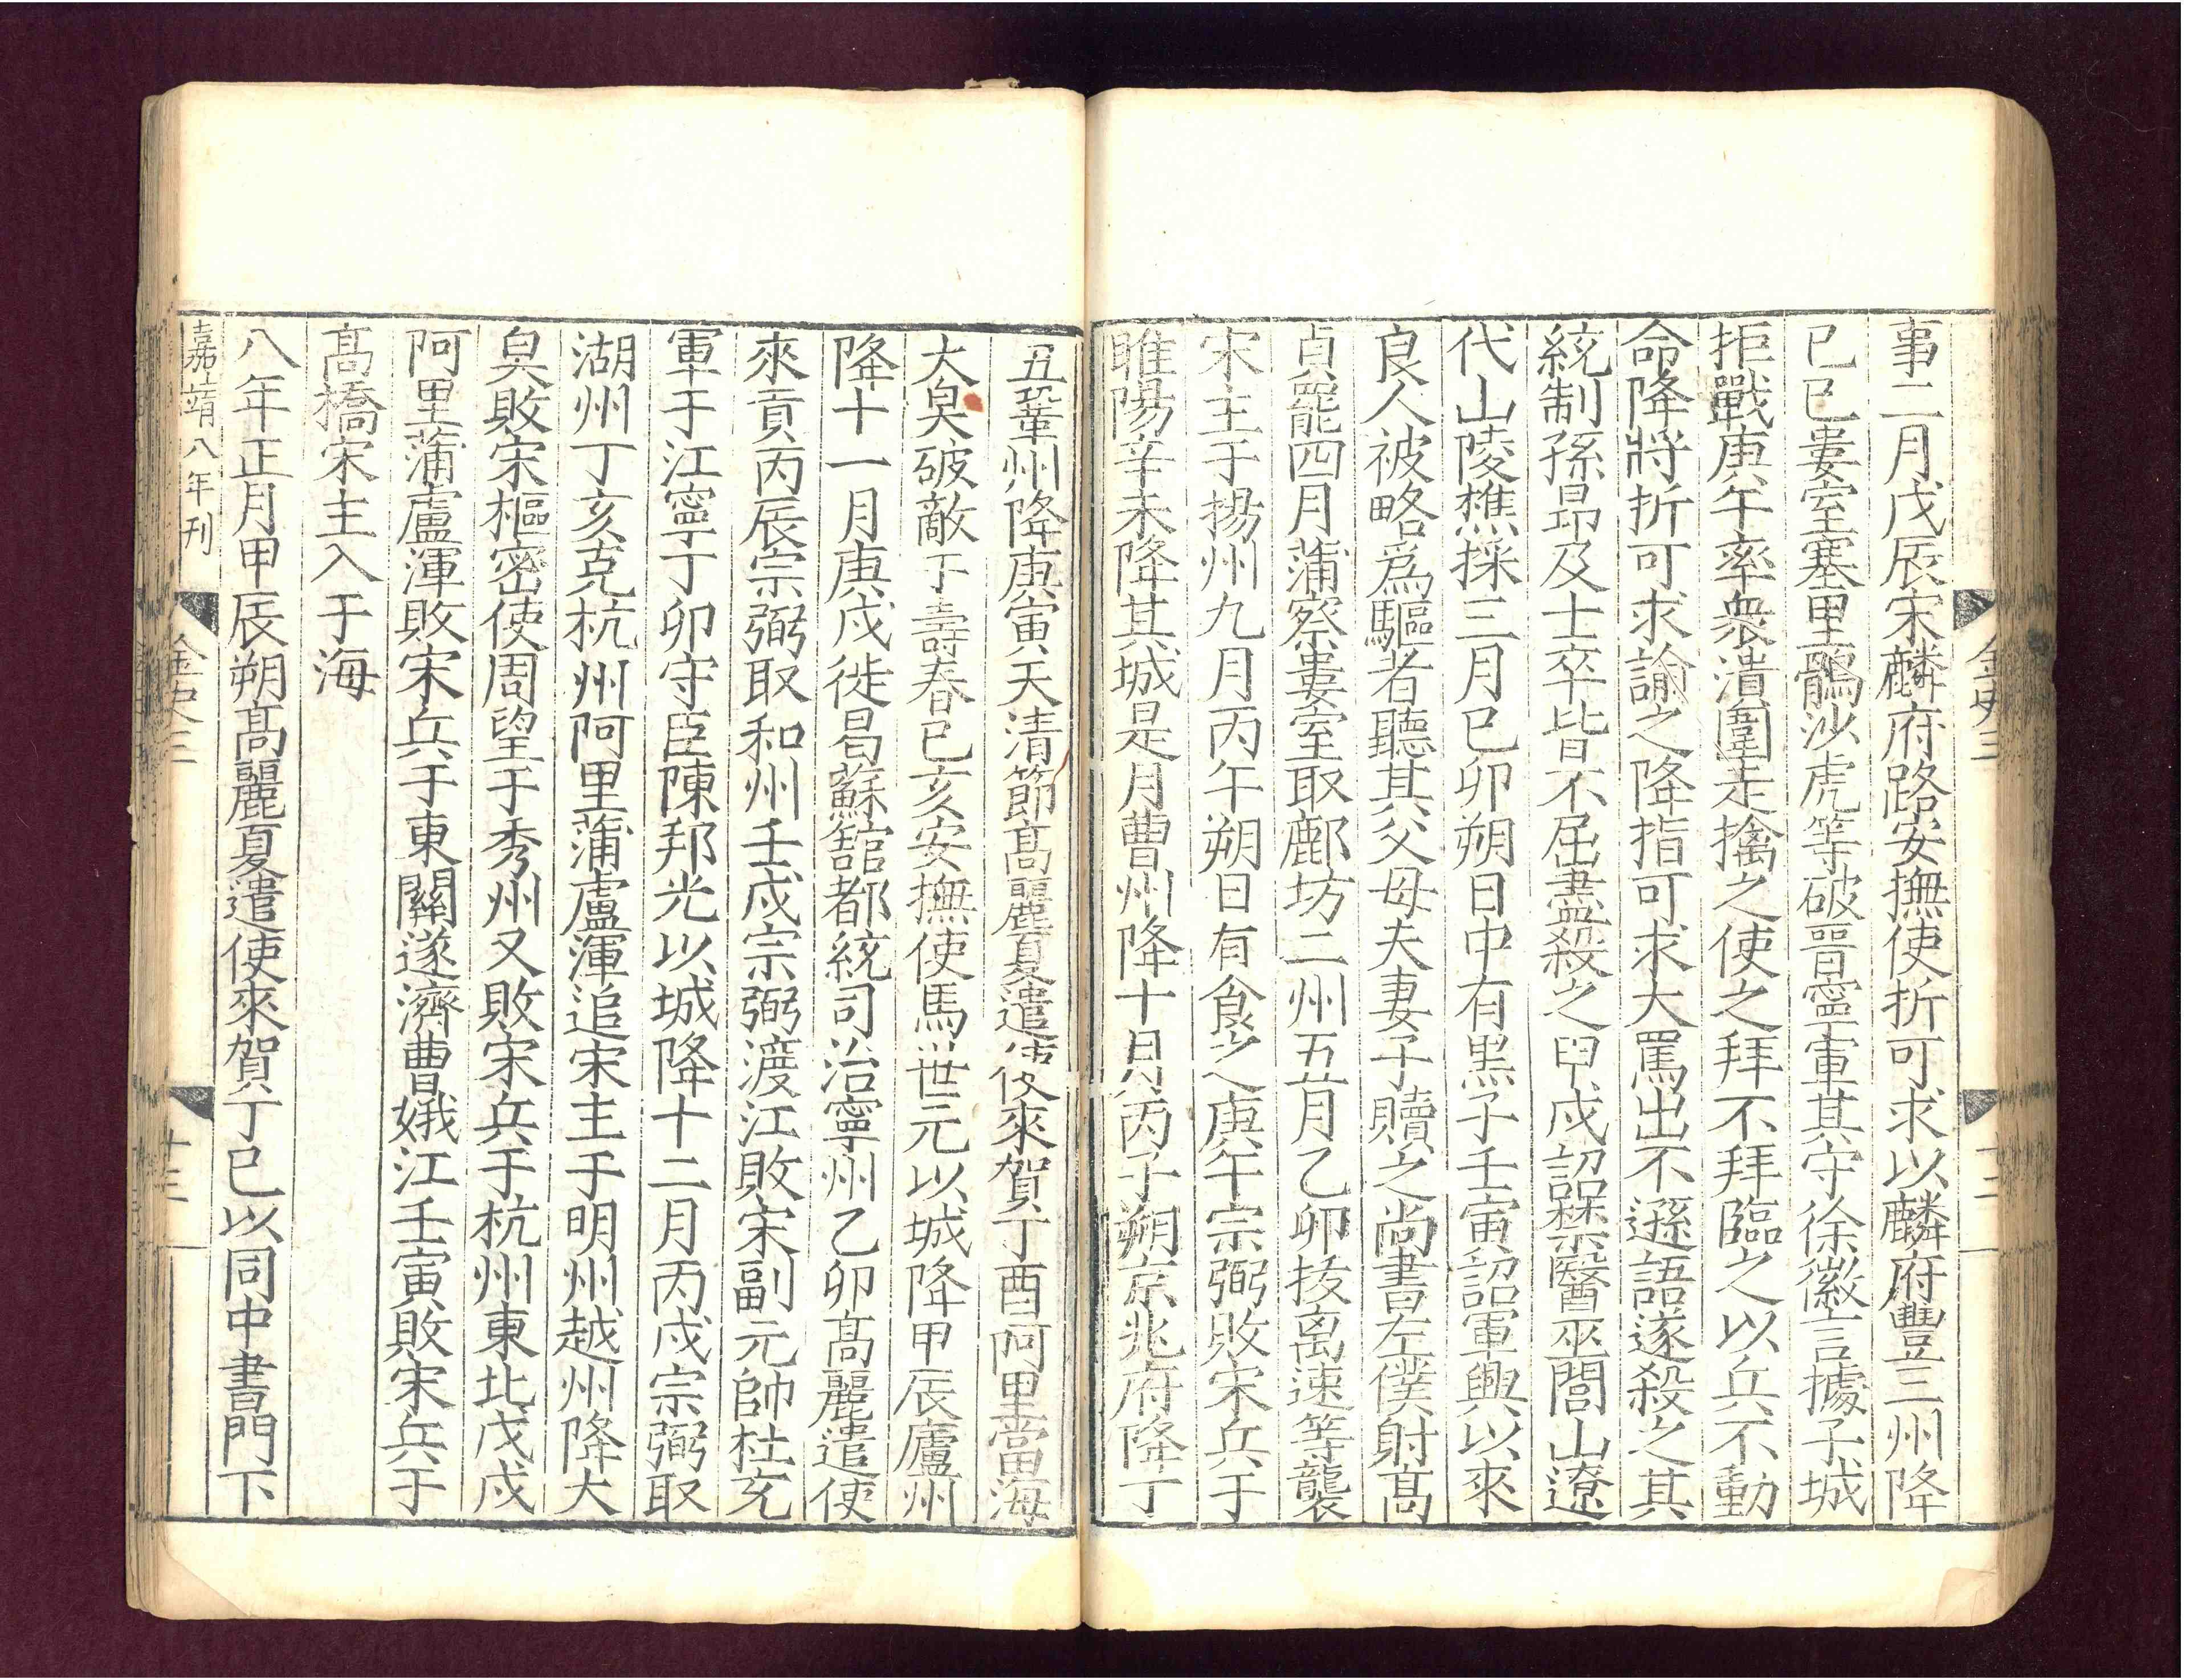 事二月戊辰宋麟府路安撫使折可求以麟府豐三州降
己巳婁室塞里鶻沙虎等破晉寧軍其守徐徽言據子城
拒戰庚午率衆潰圍走擒之使之拜不拜臨之以兵不動
命降將折可求諭之降指可求大罵出不遜語遂殺之其
統制孫昂及士卒皆不屈盡殺之甲戌詔禁醫巫閭山遼
代山陵樵採三月己卯朔日中有黑子壬寅詔軍興以來
良人被略爲驅者聽其父母夫妻子贖之尚書左僕射高
貞罷四月蒲察婁室取鄜坊二州五月乙卯拔离速等襲
宋主于揚州九月丙午朔日有食之庚午宗弼敗宋兵于
睢陽辛未降其城是月曹州降十月丙子朔京兆府降丁
丑鞏州降庚寅天清節高麗夏遣使來賀丁酉阿里當海
大㚖破敵于壽春己亥安撫使馬世元以城降甲辰廬州
降十一月庚戌徙曷蘇館都統司治寧州乙卯高麗遣使
來貢丙辰宗弼取和州壬戌宗弼渡江敗宋副元帥杜充
軍于江寧丁卯守臣陳邦光以城降十二月丙戌宗弼取
湖州丁亥克杭州阿里蒲盧渾追宋主于明州越州降大
㚖敗宋樞密使周望于秀州又敗宋兵于杭州東北戊戌
阿里蒲盧渾敗宋兵于東關遂濟曹娥江壬寅敗宋兵于
高橋宋主入于海
八年正月甲辰朔高麗夏遣使來賀丁巳以同中書門下
嘉靖八年刊
金史三
十三